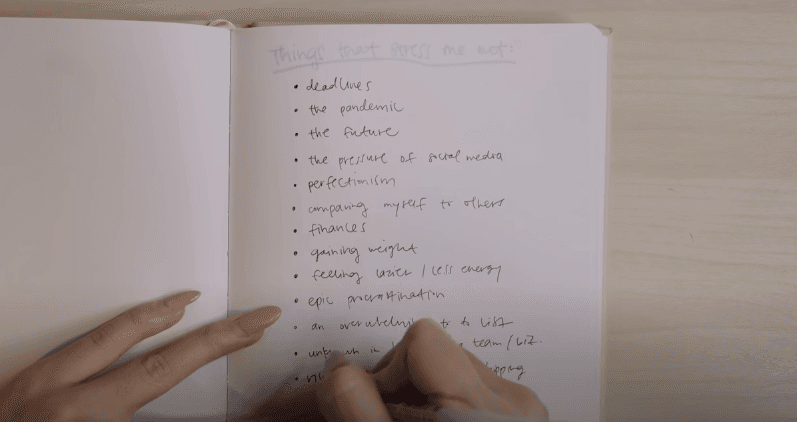 Things that stress me out:
• deadlines
• the pandemic
• the future
• the pressure of social media
• perfectionism
• comparing myself to others
• finances
• gaining weight
• feeling lazier / less energy
• epic procrastination
• an to do list
• team / biz.
•